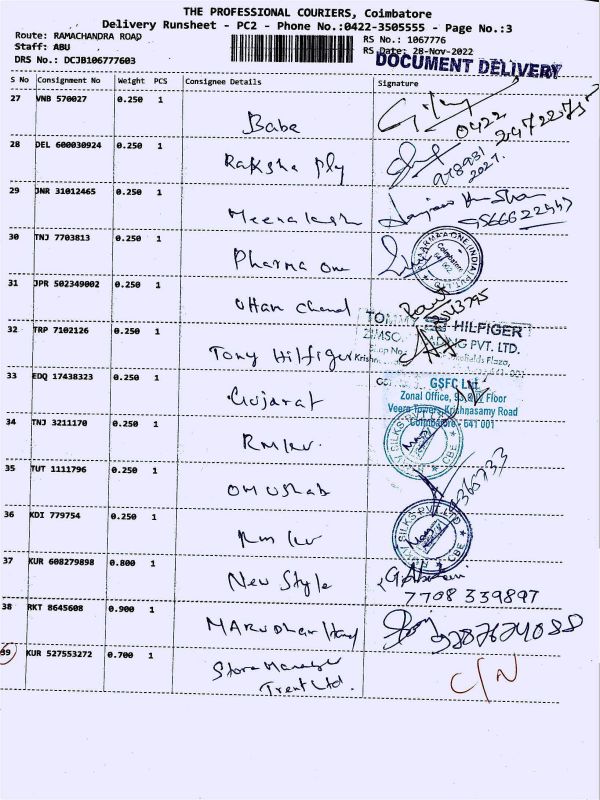 THE PROFESSIONAL COURIERS, Coimbatore
Delivery Runsheet - PC2 - Phone No.:0422-3505555 - Page No.:3
Route: RAMACHANDRA ROAD
RS No.: 1067776
Staff: ABU
RS Date: 28-Nov-2022
DRS No.: DCJB106777603
DOCUMENT DELIVERY
S No Consignment No Weight PCS Consignee Details Signature
27 VNB 570027 0.250 1 Baba 0422
28 DEL 600030924 0.250 1 Raksha Ply
29 JNR 31012465 0.250 1 Meenakesh
30 TNJ 7703813 0.250 1 Pharma one
31 JPR 502349002 0.250 1 Uttam Chand
TOMMY HILFIGER
PVT. LTD.
32 TRP 7102126 0.250 1 Tomy Hilfiger
33 EDQ 17438323 0.250 1 Gujarat
GSFC Ltd.
Zonal Office, Floor
Veera Towers, Krishnasamy Road
Coimbatore - 641 001
34 TNJ 3211170 0.250 1 RMKV
35 TUT 1111796 0.250 1
36 KDI 779754 0.250 1 RMKV
SILKS PVT.LTD
37 KUR 608279898 0.800 1 New Style
7708 339897
38 RKT 8645608 0.900 1 Marudhar
39 KUR 527553272 0.700 1 Store Manager
Trent Ltd.
C/N